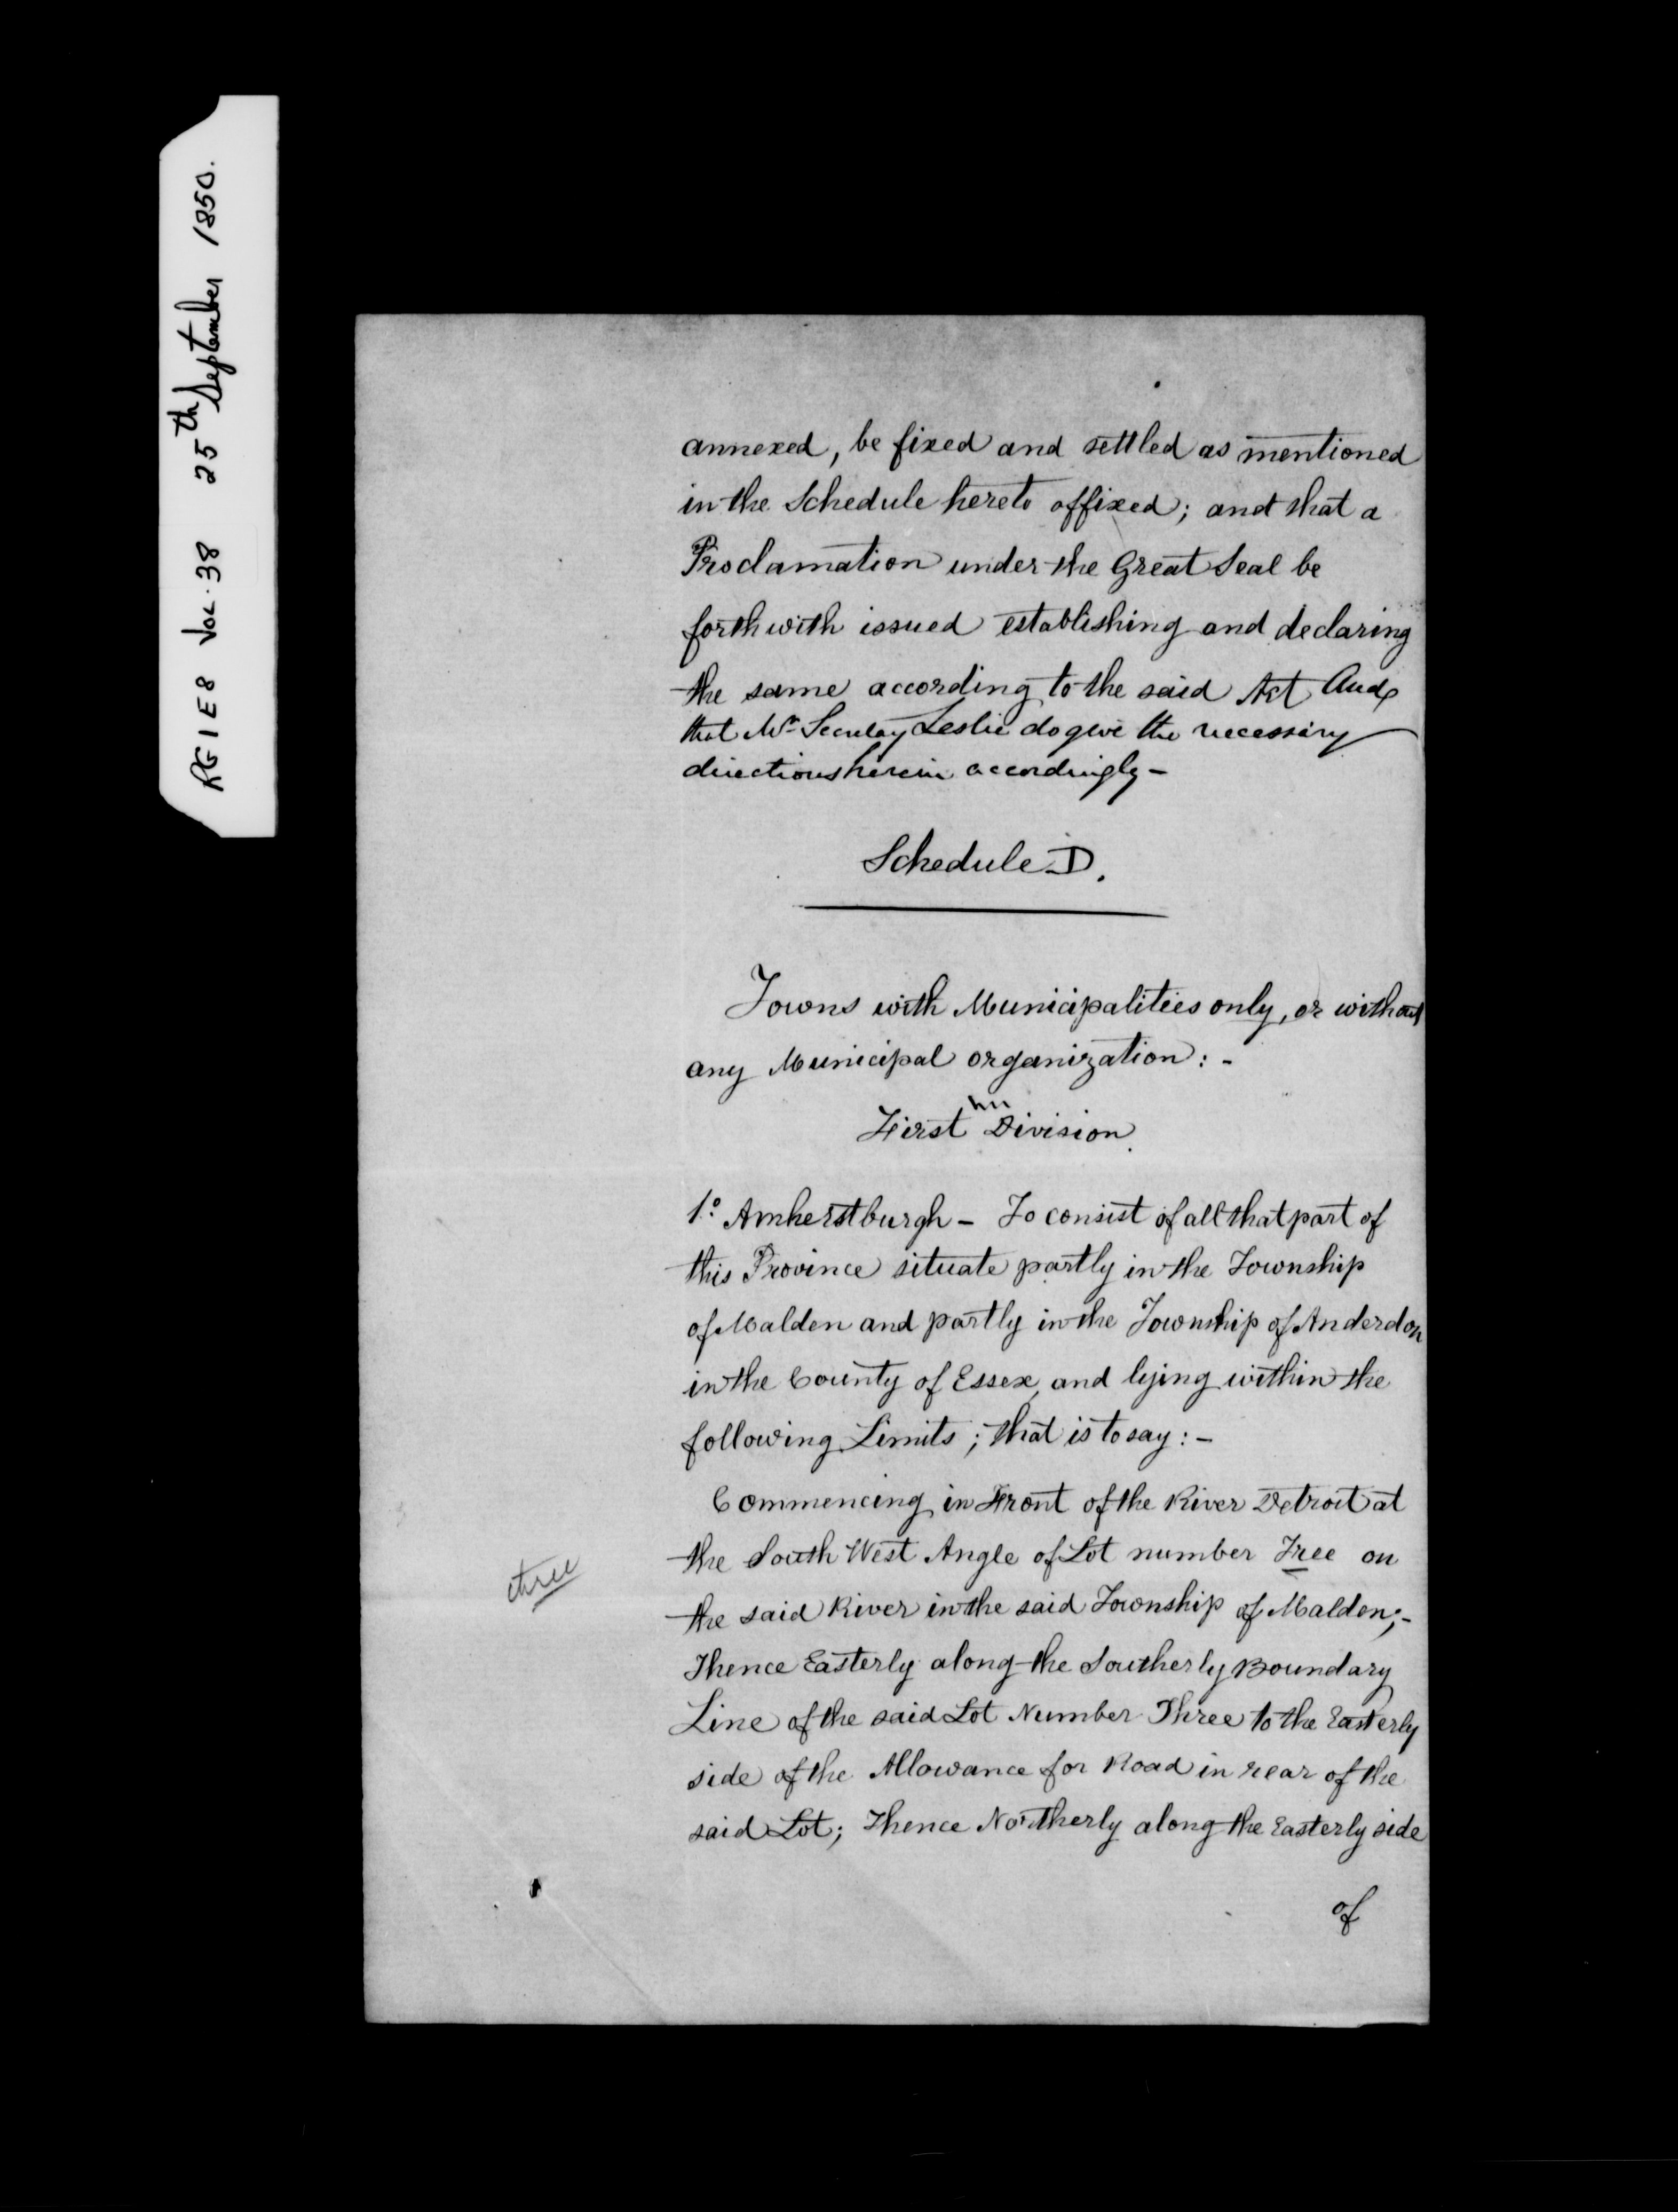 RG 1 E 8 Vol. 38 25th September 1850.
annexed, be fixed and settled as mentioned
in the Schedule hereto affixed; and that a
Proclamation under the Great Seal be
forthwith issued establishing and declaring
the same according to the said Act And
that Mr Secretary Leslie do give the necessary
directions herein accordingly –
Schedule D.
Towns with Municipalities only, or without
any Municipal organization: -
First Division.
1.º Amherstburgh – To consist of all that part of
this Province situate partly in the Township
of Malden and partly in the Township of Anderdon
in the County of Essex, and lying within the
following Limits; that is to say: –
Commencing in Front of the River Detroit at
the South West Angle of Lot number Tree on
three
the said River in the said Township of Malden; -
Thence Easterly along the Southerly Boundary
Line of the said Lot Number Three to the Easterly
side of the Allowance for Road in rear of the
said Lot; Thence Northerly along the Easterly side
of